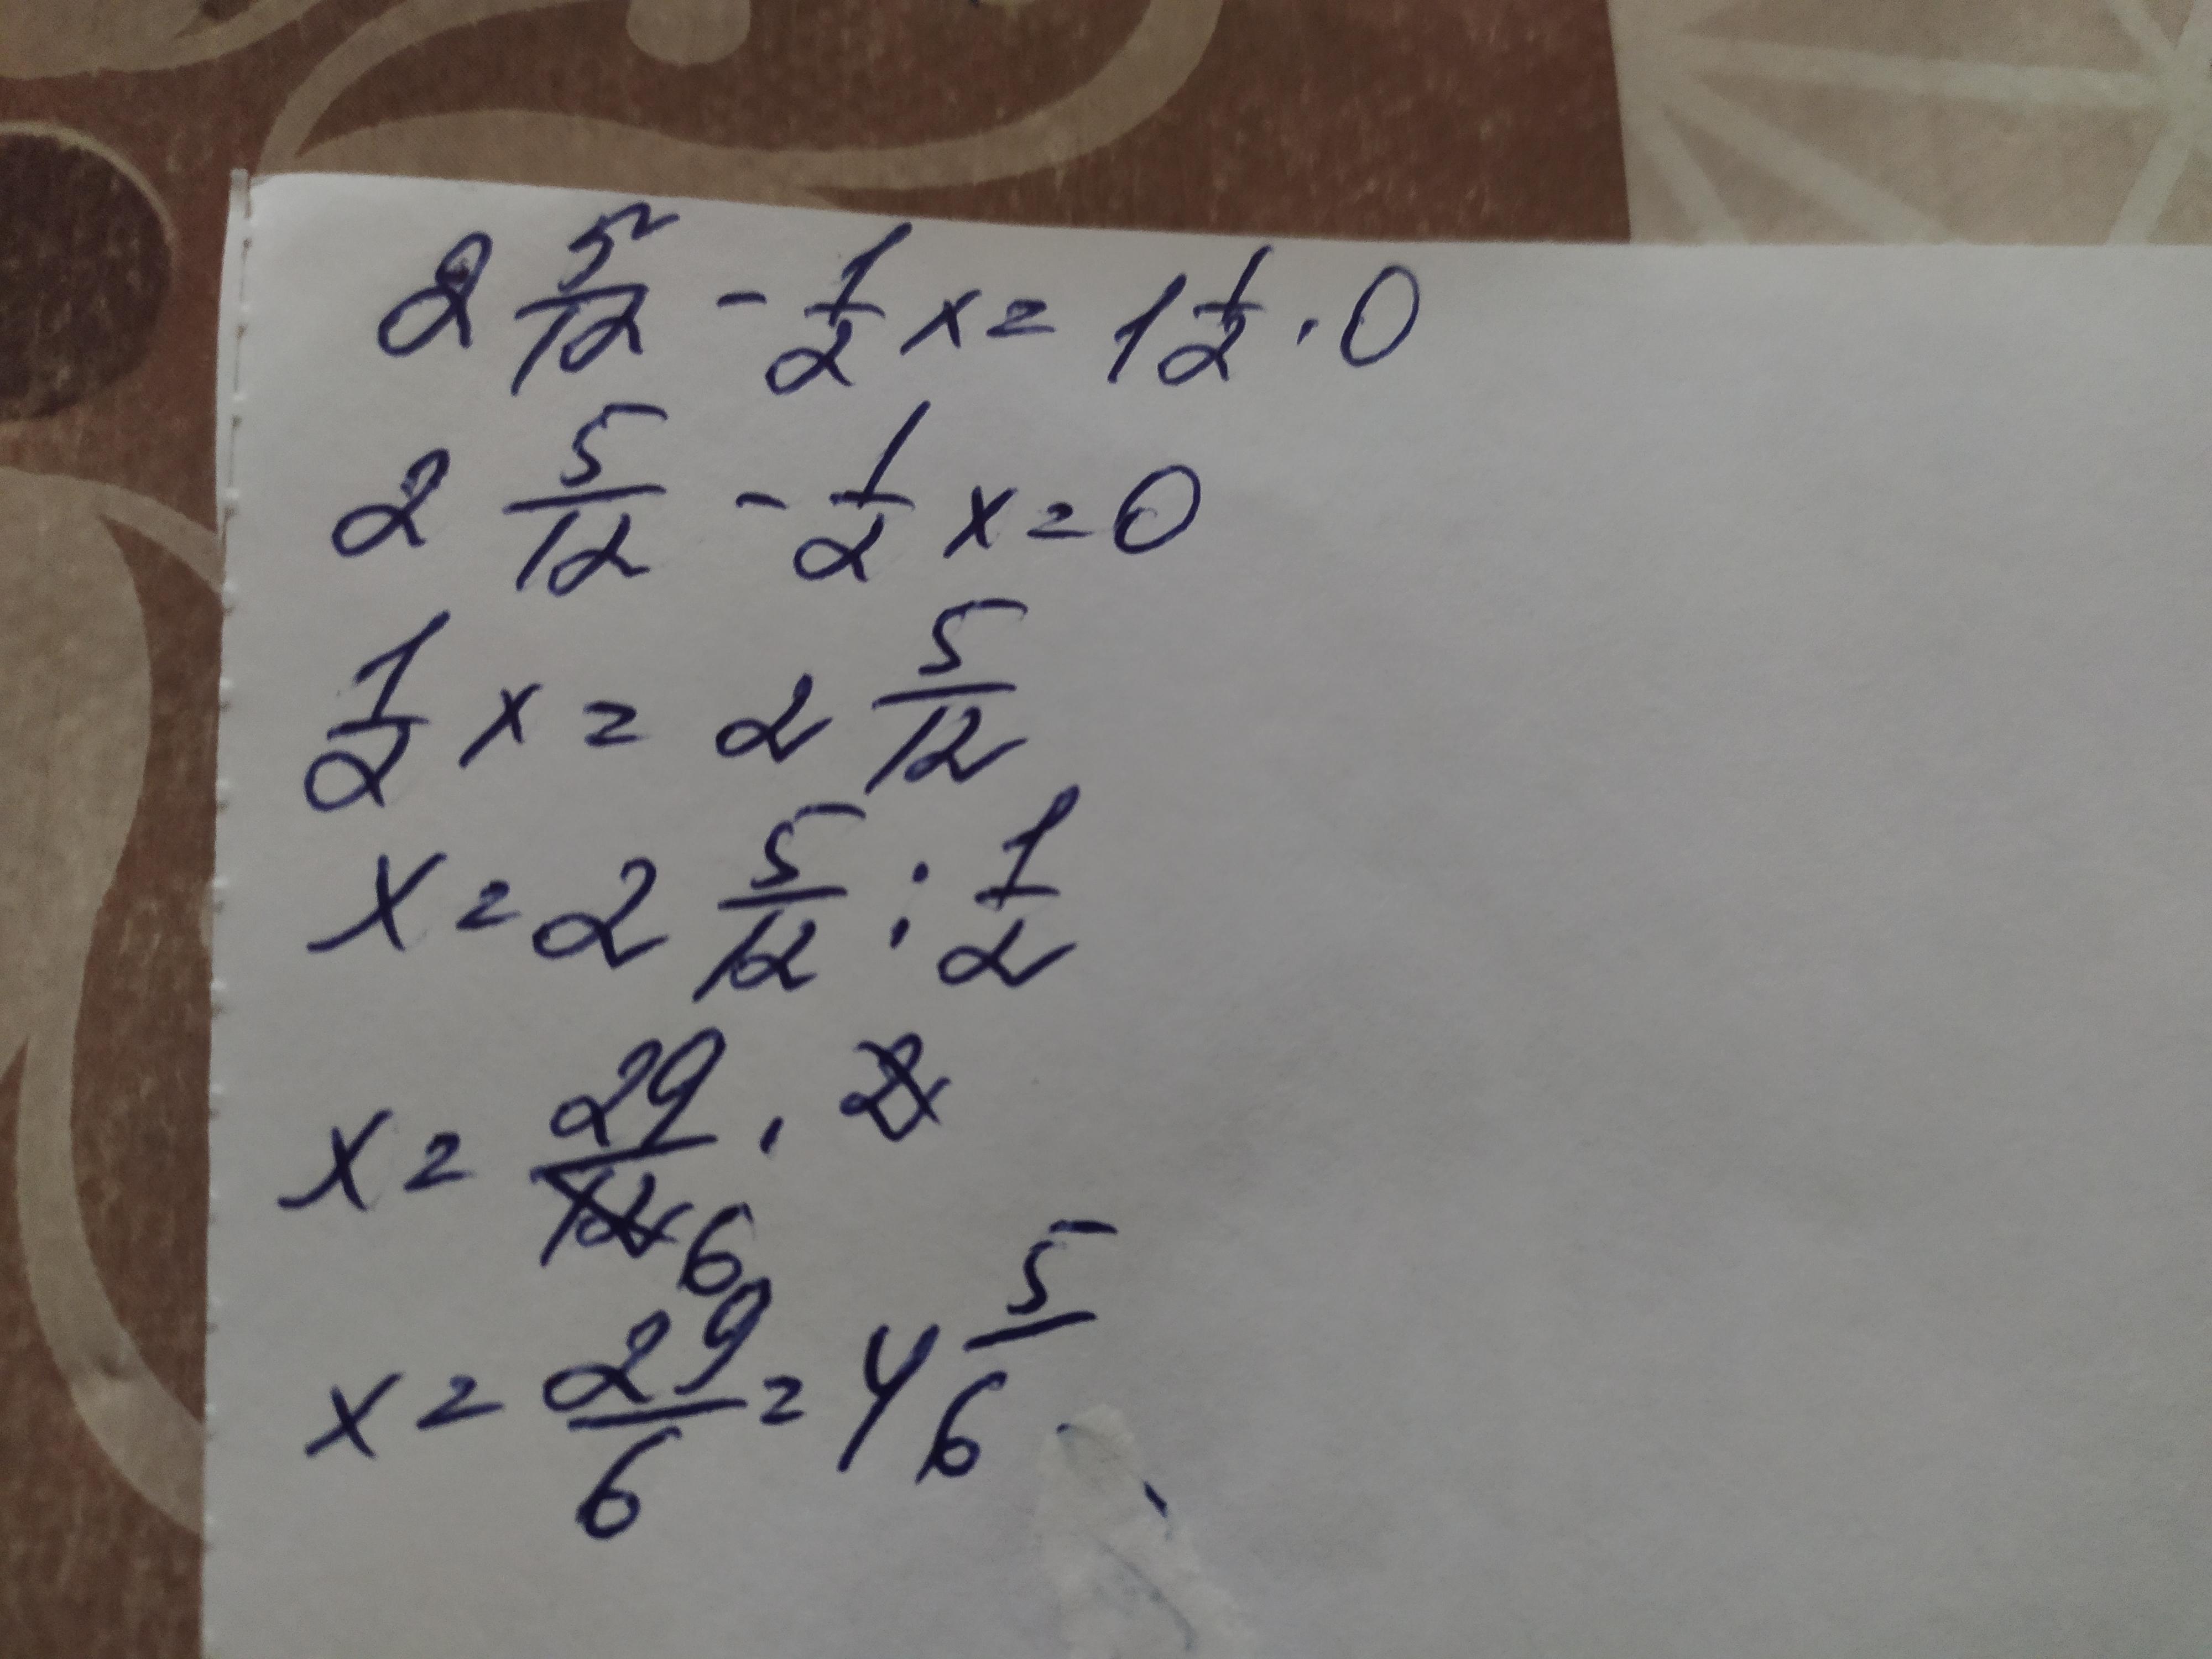 2 5/12 - 1/2 x = 1 1/2 · 0
2 5/12 - 1/2 x = 0
1/2 x = 2 5/12
x = 2 5/12 : 1/2
x = 29/12 6 · 2
x = 29/6 = 4 5/6